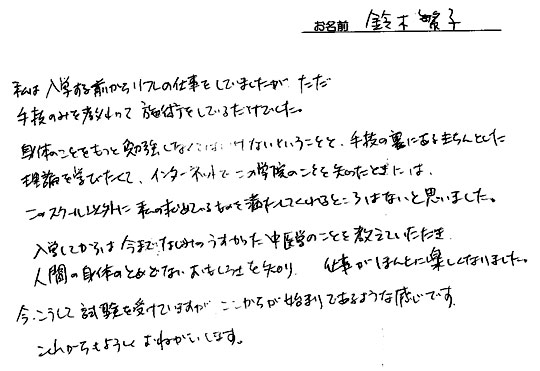 お名前 鈴木 愛子
私は入学する前からリフレの仕事をしていましたが ただ
手技のみを教わって施術をしているだけでした。
身体のことをもっと勉強しなくてはいけないということと、手技の裏にあるきちんとした
理論を学びたくて、インターネットでこの学院のことを知ったときには、
このスクール以外に私の求めているものを満たしてくれるところはないと思いました。
入学してからは今までなじみのうすかった中医学のことを教えていただき
人間の身体のとめどないおもしろさを知り、仕事がほんとに楽しくなりました。
今、こうして試験を受けていますが ここからが始まりであるような感じです。
これからもよろしくおねがいします。